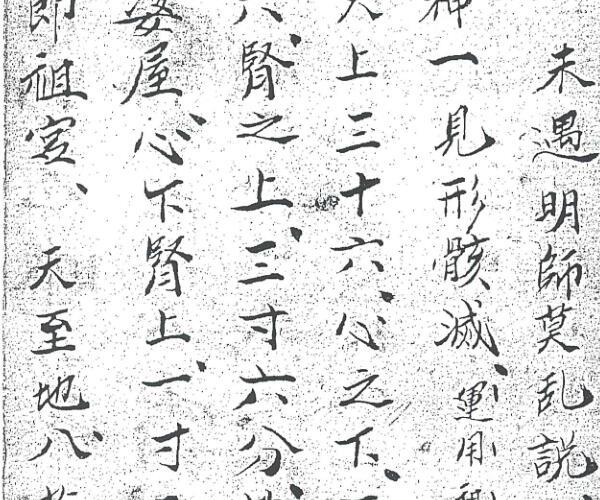 未遇明師莫乱說、
神一見形骸滅、運用
上三十六、心之下、
腎之上、三寸六分、
屋心、下腎上、一寸
即祖宮、天至地八